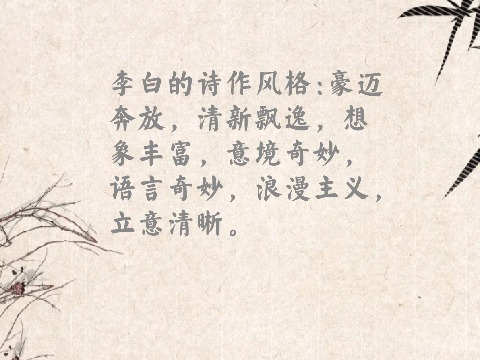 李白的诗作风格:豪迈
奔放，清新飘逸，想
象丰富，意境奇妙，
语言奇妙，浪漫主义，
立意清晰。